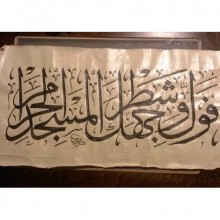 فول وجهك شطر المسجد الحرام